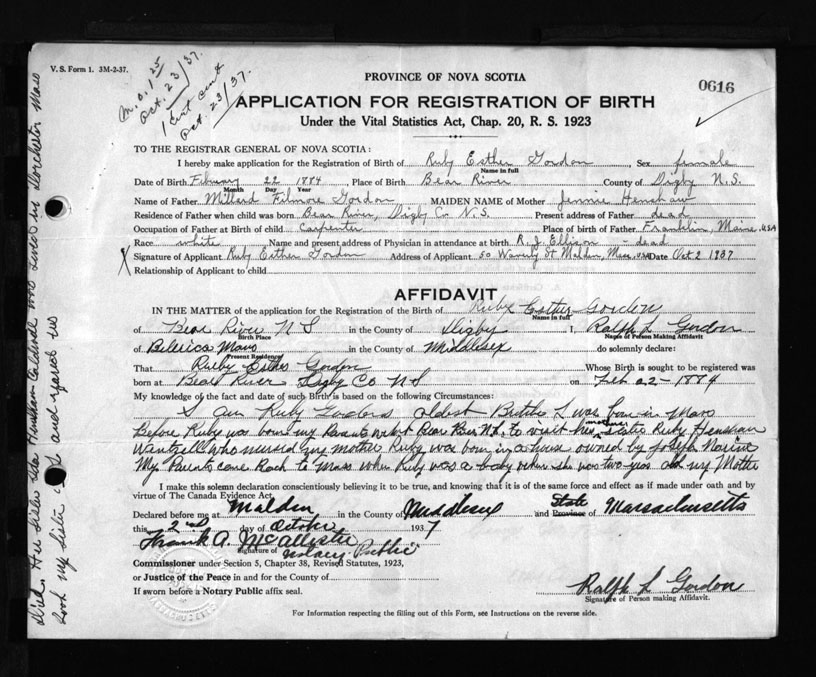 V. S. Form 1. 3M-2-37.
M.O. 1 25
Oct. 23/37.
1 Cert sent
Oct. 23/37.
0616
PROVINCE OF NOVA SCOTIA
APPLICATION FOR REGISTRATION OF BIRTH
Under the Vital Statistics Act, Chap. 20, R. S. 1923
TO THE REGISTRAR GENERAL OF NOVA SCOTIA:
I hereby make application for the Registration of Birth of Ruby Esther Gordon Sex female
Name in full
Date of Birth February 22 1884 Place of Birth Bear River County of Digby N.S.
Month Day Year
Name of Father Millard Filmore Gordon MAIDEN NAME of Mother Jennie Henshaw
Residence of Father when child was born Bear River, Digby Co N.S. Present address of Father dead
Occupation of Father at Birth of child carpenter Place of birth of Father Franklin, Maine, USA
Race white Name and present address of Physician in attendance at birth R. J. Ellison - dead
X Signature of Applicant Ruby Esther Gordon Address of Applicant 50 Waverly St Malden, Mass, USA Date Oct 2 1937
Relationship of Applicant to child
AFFIDAVIT
IN THE MATTER of the application for the Registration of Birth of Ruby Esther Gordon
Name in full
of Bear River N S in the County of Digby I, Ralph L Gordon
Birth Place Name of Person Making Affidavit
of Billerica Mass in the County of Middlesex do solemnly declare:
Present Residence
That Ruby Esther Gordon Whose Birth is sought to be registered was
born at Bear River Digby Co NS on Feb 22-1884
My knowledge of the fact and date of such Birth is based on the following Circumstances:
I am Ruby Gordons oldest Brother I was born in Mass
mother
Before Ruby was born my Parents went Bear River NS, to visit her sister Ruby Henshaw
who nursed my mother Ruby was born in a house owned by Joseph
My Parents came Back to Mass when Ruby was a baby when she was two yrs old my Mother
Died. Her sister Henshaw who lived in Dorchester Mass
Took my sister and reared her
I make this solemn declaration conscientiously believing it to be true, and knowing that it is of the same force and effect as if made under oath and by
virtue of The Canada Evidence Act.
Declared before me at Malden in the County of Middlesex and State Province of Massachusetts
this 2nd day of October 1937
Frank A. McAllister
Signature of
Notary Public
Commissioner under Section 5, Chapter 38, Revised Statutes, 1923,
or Justice of the Peace in and for the County of
If sworn before a Notary Public affix seal.
Ralph L Gordon
Signature of Person making Affidavit.
For Information respecting the filling out of this Form, see Instructions on the reverse side.